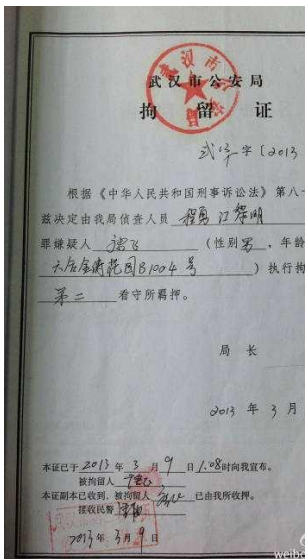 武汉市公安局
拘留证
武 字〔2013
根据《中华人民共和国刑事诉讼法》第八十
兹决定由我局侦查人员 程勇 江黎明
罪嫌疑人 飞 （性别 男 ，年龄
六合金街花园B1004号 ）执行拘
第二 看守所羁押。
局 长
2013 年 3 月
本证已于 2013 年 3 月 9 日 1.08 时向我宣布。
被拘留人
本证副本已收到，被拘留人 已由我所收押。
接收民警
2013 年 3 月 9 日
weibo